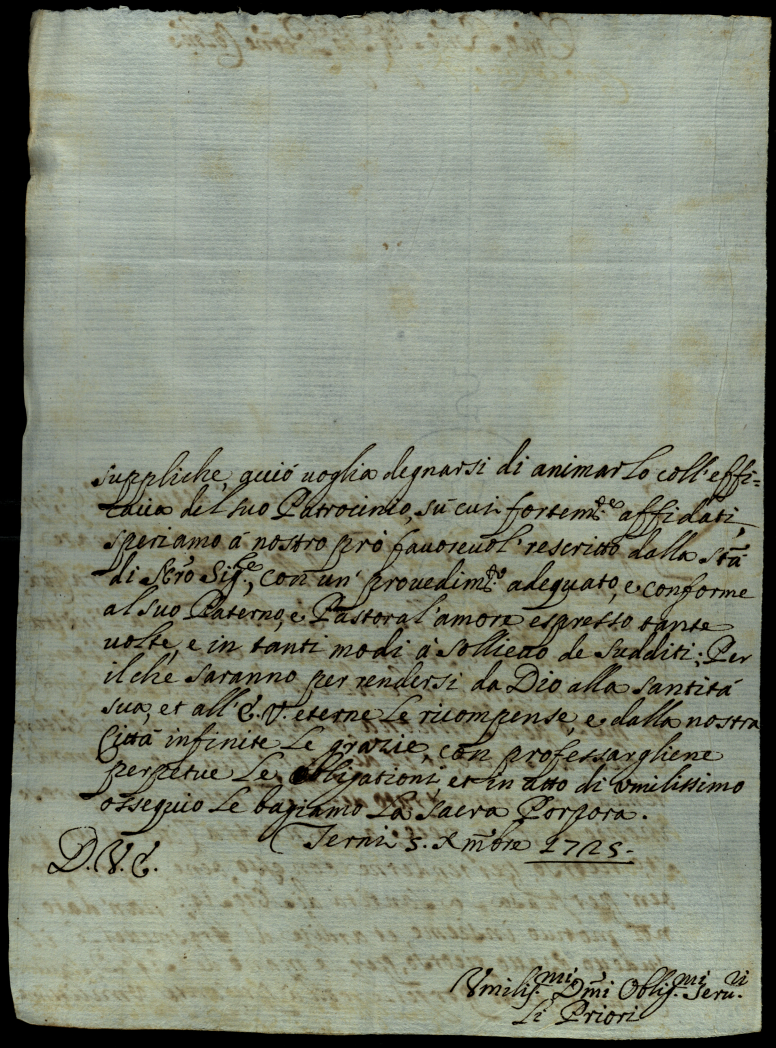 suppliche, acciò voglia degnarsi di animarlo coll'effi-
cacia del suo Patrocinio, sù cui fortem.te affidati,
speriamo à nostro prò favorevol' rescritto dalla Stà
di Nro Sig.re, con un' provedim.to adequato, e conforme
al suo Paterno, e Pastoral' amore espresso tante
volte, e in tanti modi à sollievo de Sudditi; Per
il che saranno per rendersi da Dio alla Santità
sua, et all'E.V. eterne le ricompense, e dalla nostra
Città infinite le grazie, con professargliene
perpetue le obligationi, et in atto di umilissimo
ossequio le bagiamo la Sacra Porpora.
Terni 5. Xmbre 1725.
D.V.E.
Umiliss.mi Dmi Oblig.mi Seru.ri
Li Priori